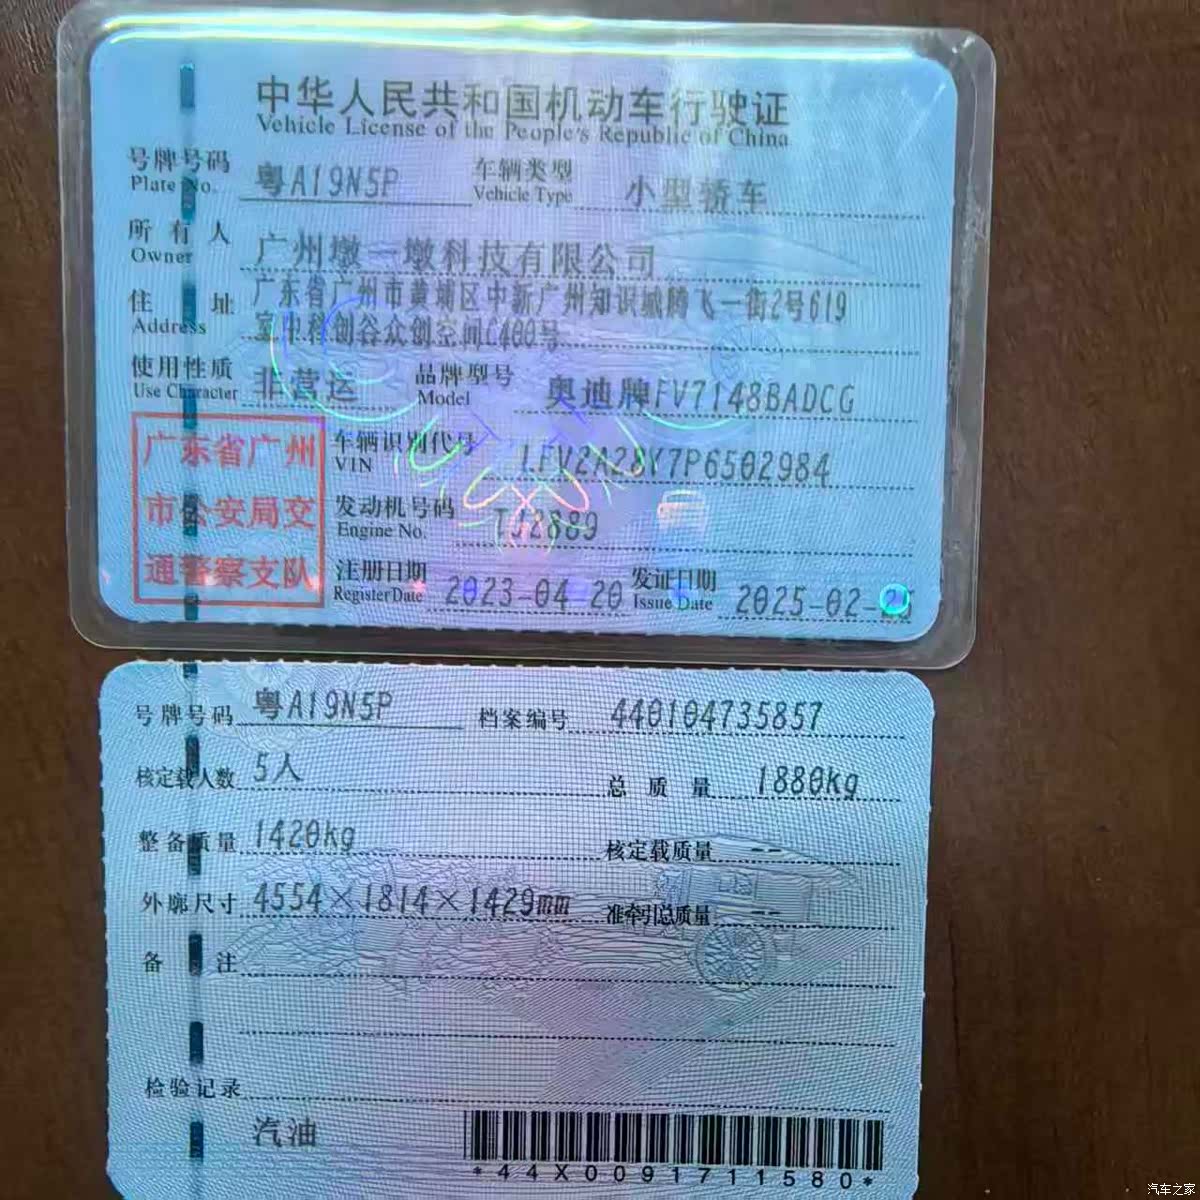 中华人民共和国机动车行驶证
Vehicle License of the People's Republic of China
号牌号码 粤A19N5P 车辆类型 小型轿车
Plate No. Vehicle Type
所有人 广州墩一墩科技有限公司
Owner
住址 广东省广州市黄埔区中新广州知识城腾飞一街2号619
Address 室中科创谷众创空间C400号
使用性质 非营运 品牌型号 奥迪牌FV7148BADCG
Use Character Model
广东省广州
市公安局交
通警察支队
车辆识别代号 LFV2A28Y7P6502984
VIN
发动机号码 TJ2889
Engine No.
注册日期 2023-04-20 发证日期 2025-02-
Register Date Issue Date
号牌号码 粤A19N5P 档案编号 440104735857
核定载人数 5人 总质量 1880kg
整备质量 1420kg 核定载质量 --
外廓尺寸 4554×1814×1429mm 准牵引总质量 --
备注
检验记录
汽油
*44X0091711580*
汽车之家